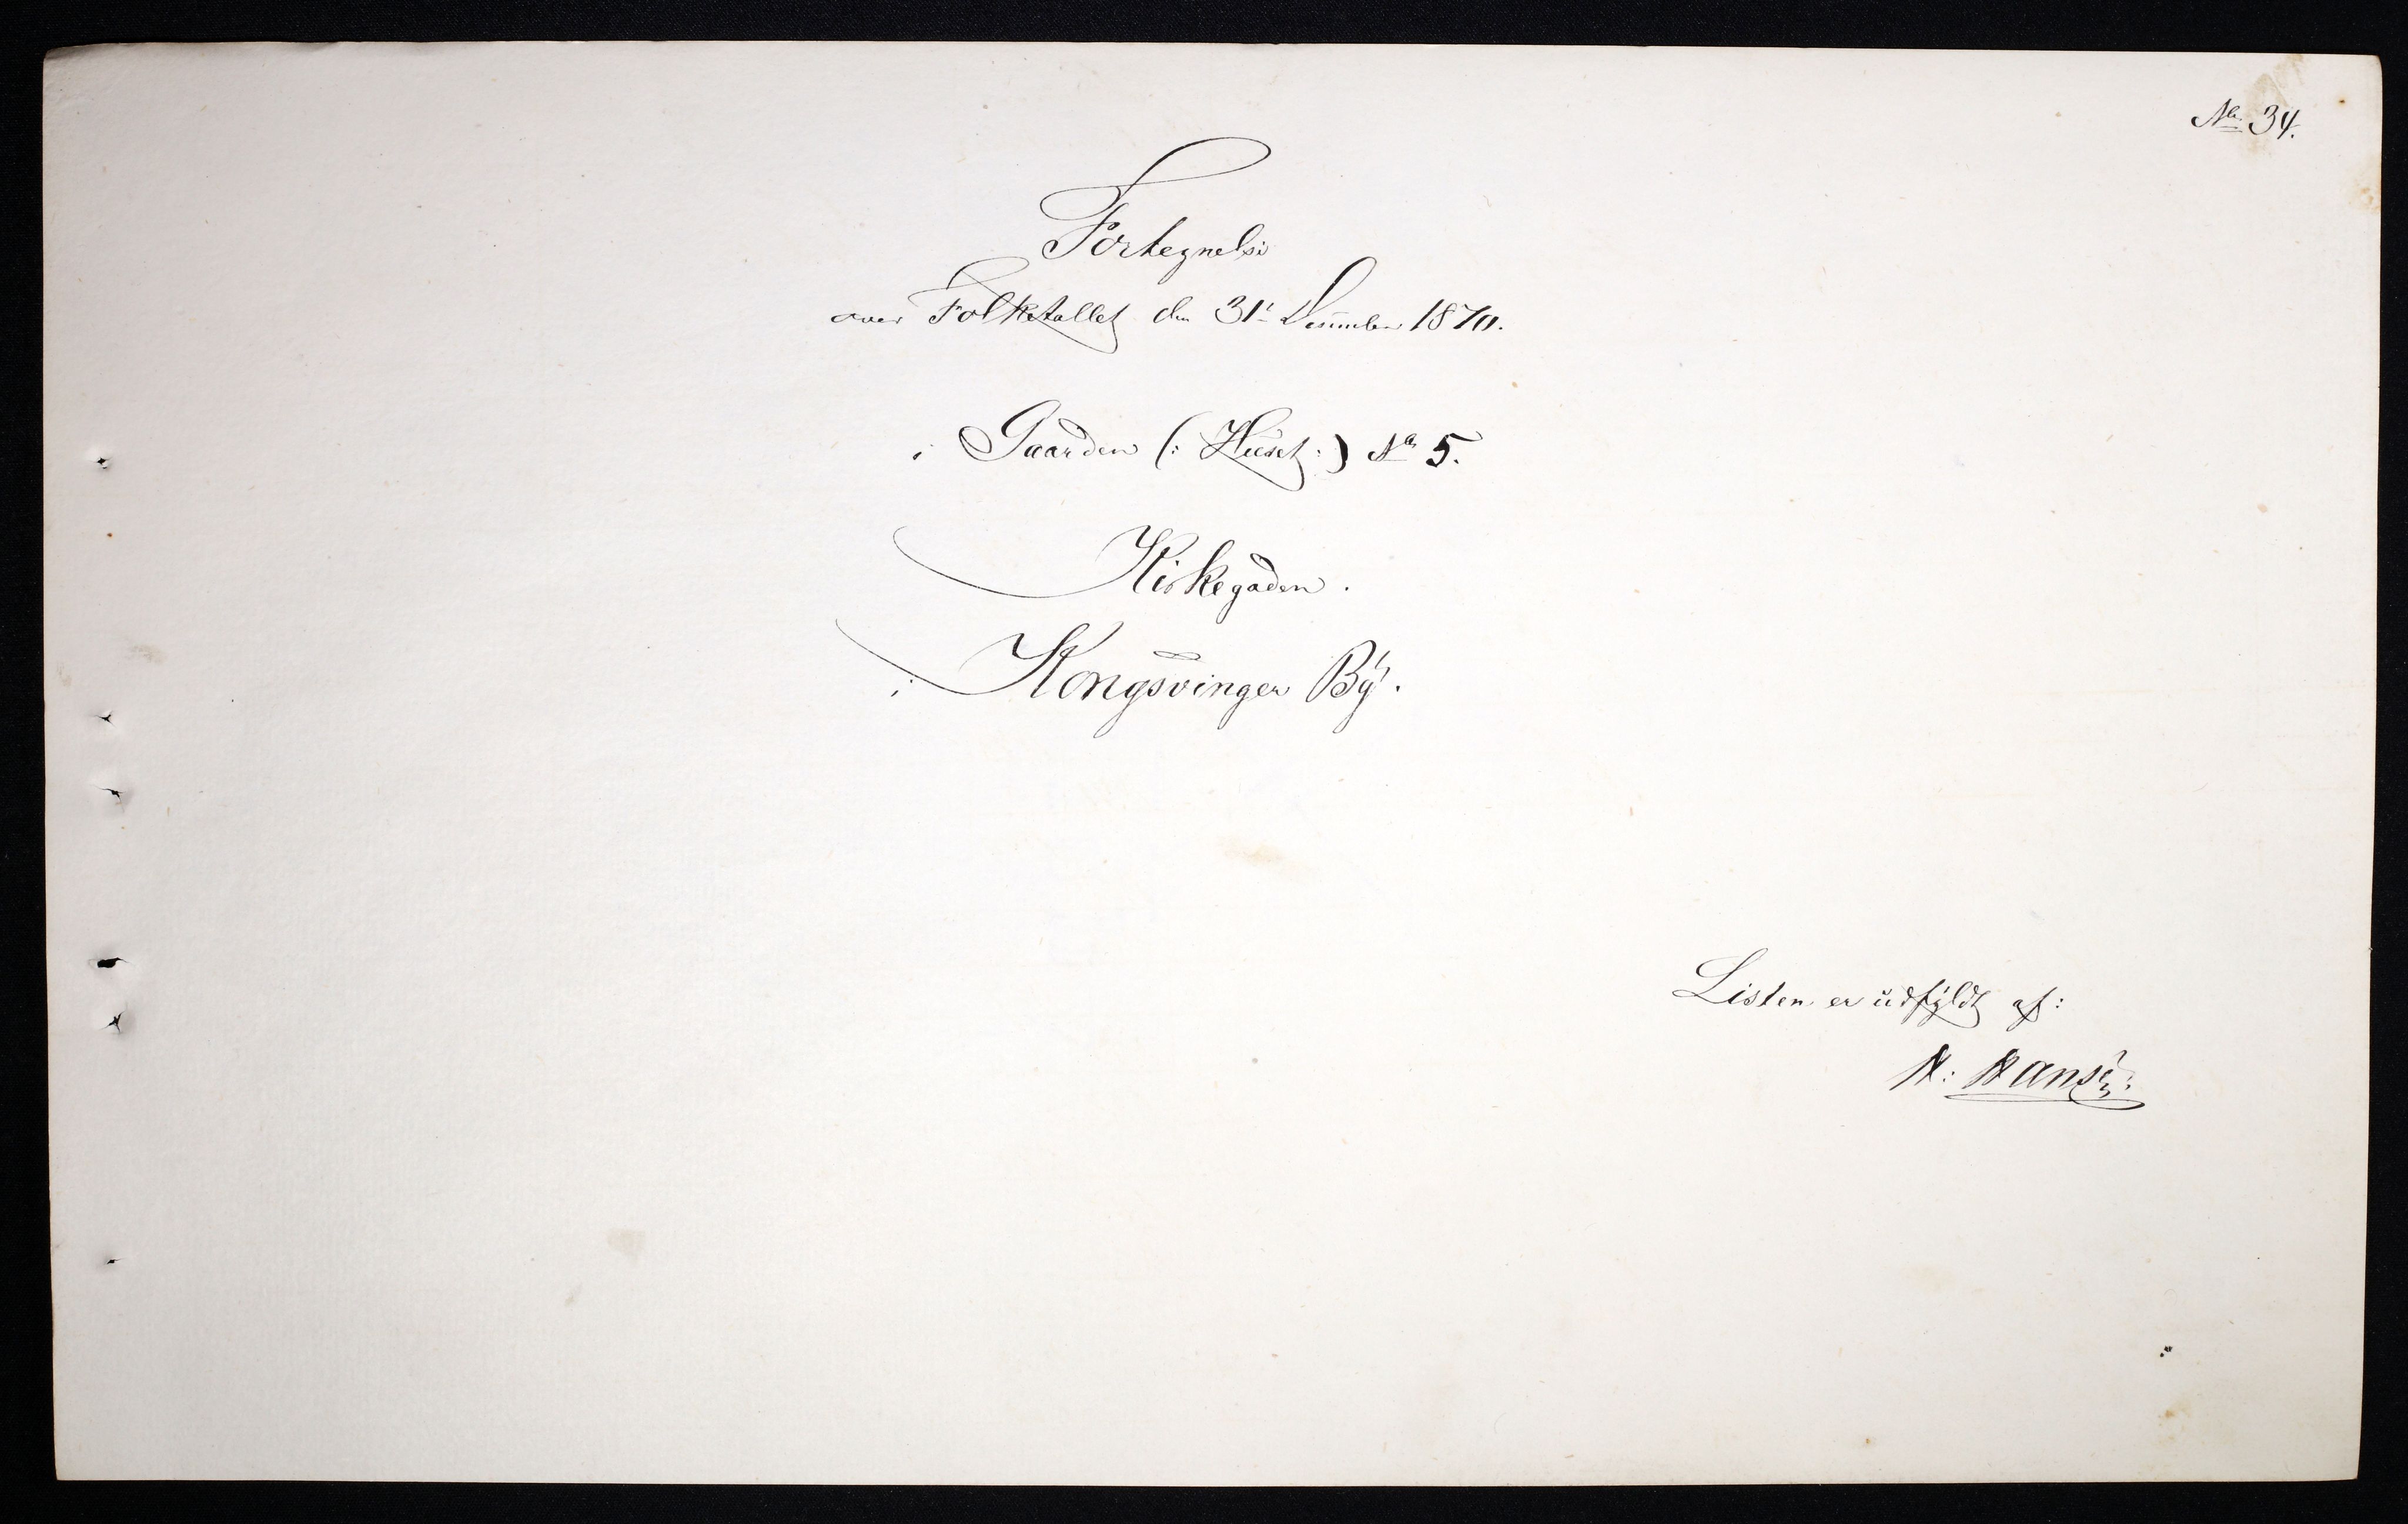 No 34.
Fortegnelse
over Folketallet den 31t December 1870.
i Gaarden (: Huset :) No 5.
Kirkegaden.
i Kongsvinger By.
Listen er udfyldt af:
H: Hansen: